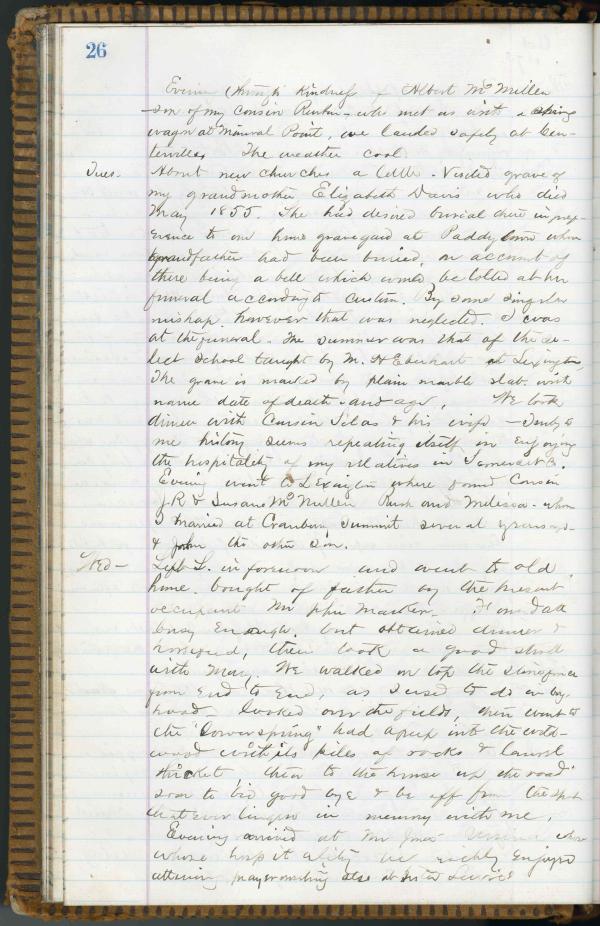 26
Evening through kindness of Albert McMillen
son of my cousin who met us with a spring
wagon at Mineral Point, we landed safely at Cen-
terville. The weather cool.
Tues. About new churches a little. Visited grave of
my grandmother Elizabeth Davis who died
May 1855. She had desired burial there in pref-
erence to our home graveyard at Paddytown where
Grandfather had been buried, on account of
there being a bell which would be tolled at her
funeral according to custom. By some singular
mishap, however that was neglected. I was
at the funeral. The summer was that of the se-
lect school taught by M. H Eberhart at Lexington,
The grave is marked by plain marble slab with
name date of death and age, We took
dinner with Cousin Silas & his wife — Truly to
me history seems repeating itself in enjoying
the hospitality of my relatives in Somerset Co.
Evening went to Lexington where found Cousin
J. R. & Susan McMillen and Melissa - whom
I married at Cranbury Summit several years ago
& John the other son.
Wed — Left L. in forenoon and went to old
home bought of father by the present
occupant Mr
busy enough, but obtained dinner &
horsefeed, then took a good stroll
with Mary We walked on top the stone fence
from end to end, as I used to do in boy-
hood, looked over the fields, then went to
the "lower spring" had a peep into the wild-
wood with its piles of rocks & laurel
thicket, then to the house up the road
soon to bid good bye & be off from the spot
that ever lingers in memory with me.
Evening arrived at Mr Jones Ursina
whose hospitality we richly enjoyed
attending prayermeeting also at